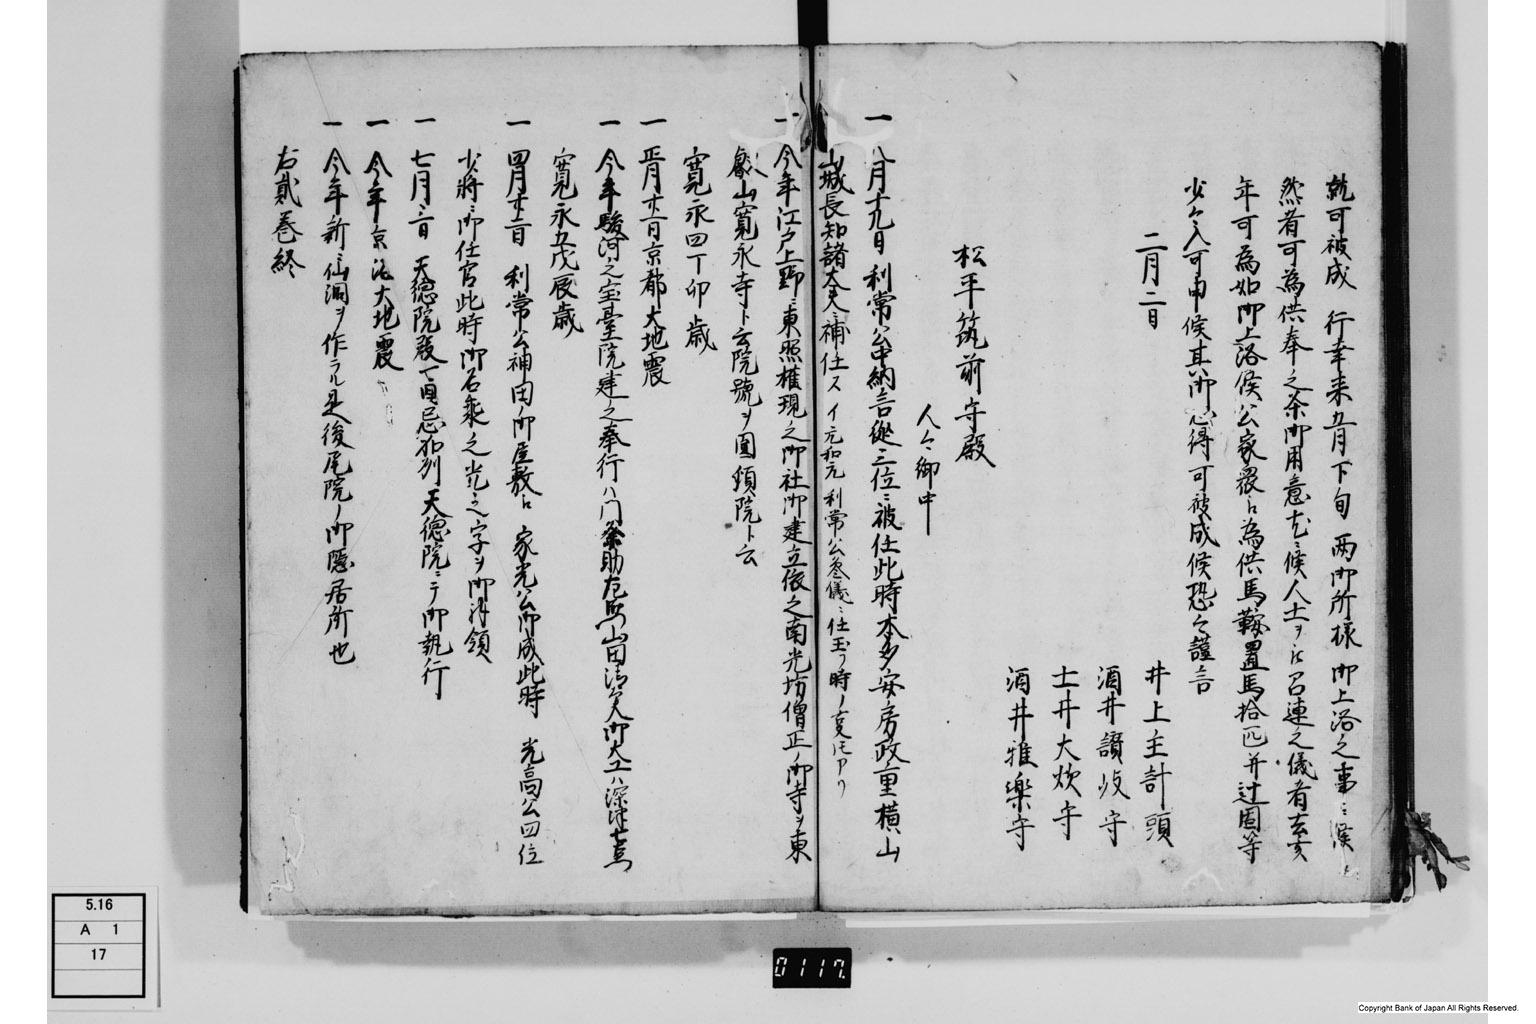 就可被成　行幸来五月下旬　両御所様　御上洛之事ニ候
然者可為供奉之条御用意尤ニ候人土ヲ被召連之儀者去亥
年可為如御上洛候公家衆ニ為供馬鞍置馬拾匹并辻固等
少々入可申候其御心得可被成候恐々謹言
二月二日
井上主計頭
酒井讃岐守
土井大炊守
酒井雅楽守
松平筑前守殿
人々御中
一 八月十九日　利常公中納言従三位ニ被任此時本多安房政重横山
山城長知諸大夫ニ補任ス イ元和元　利常公参儀ニ任玉フ時ノ
一 今年江戸上野ニ東照権現之御社御建立依之南光坊僧正ノ御寺ヲ東
叡山寛永寺ト云院號ヲ圓頓院ト云
寛永四丁卯歳
一 正月廿一日京都大地震
一 今年駿河之宝臺院建之奉行ハ門奈助左衛門山田清大夫御大工ハ深津七右
寛永五戊辰歳
一 四月廿三日　利常公神田ノ御屋敷ニ　家光公御成此時　光高公四位
少将ニ御任官此時御名乗之光之字ヲ御拝領
一 七月三日　天徳院殿七回忌加列天徳院ニテ御執行
一 今年京江大地震
一 今年新ニ仙洞ヲ作ラル是後尾院ノ御隠居所也
右貳巻終
5.16
A 1
17
0117.
Copyright Bank of Japan All Rights Reserved.